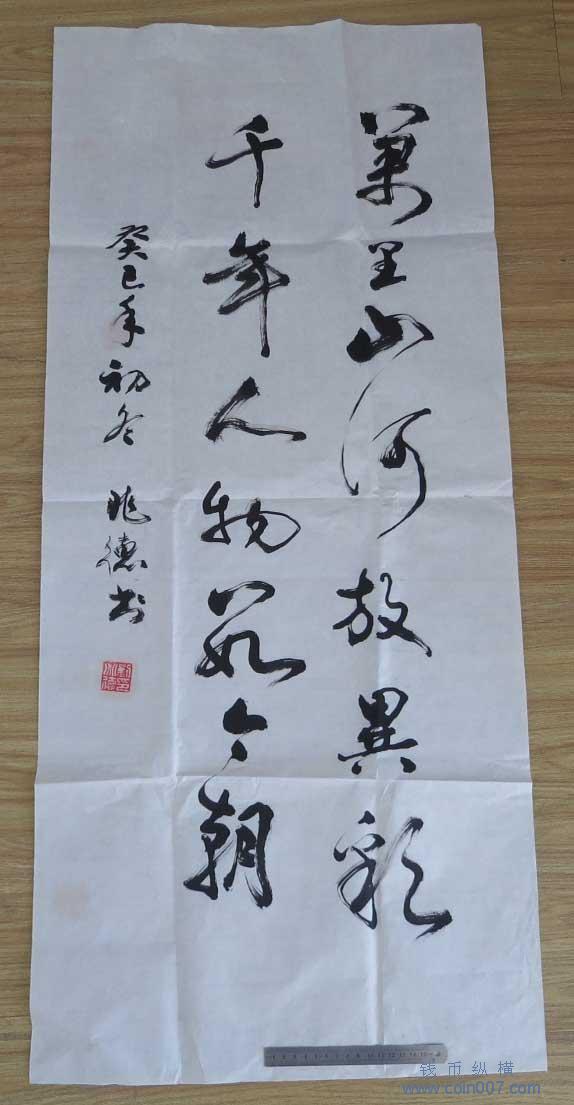 萬里山河放異彩
千年人物數今朝
癸巳年初冬 兆德書
钱币纵横
www.coin007.com